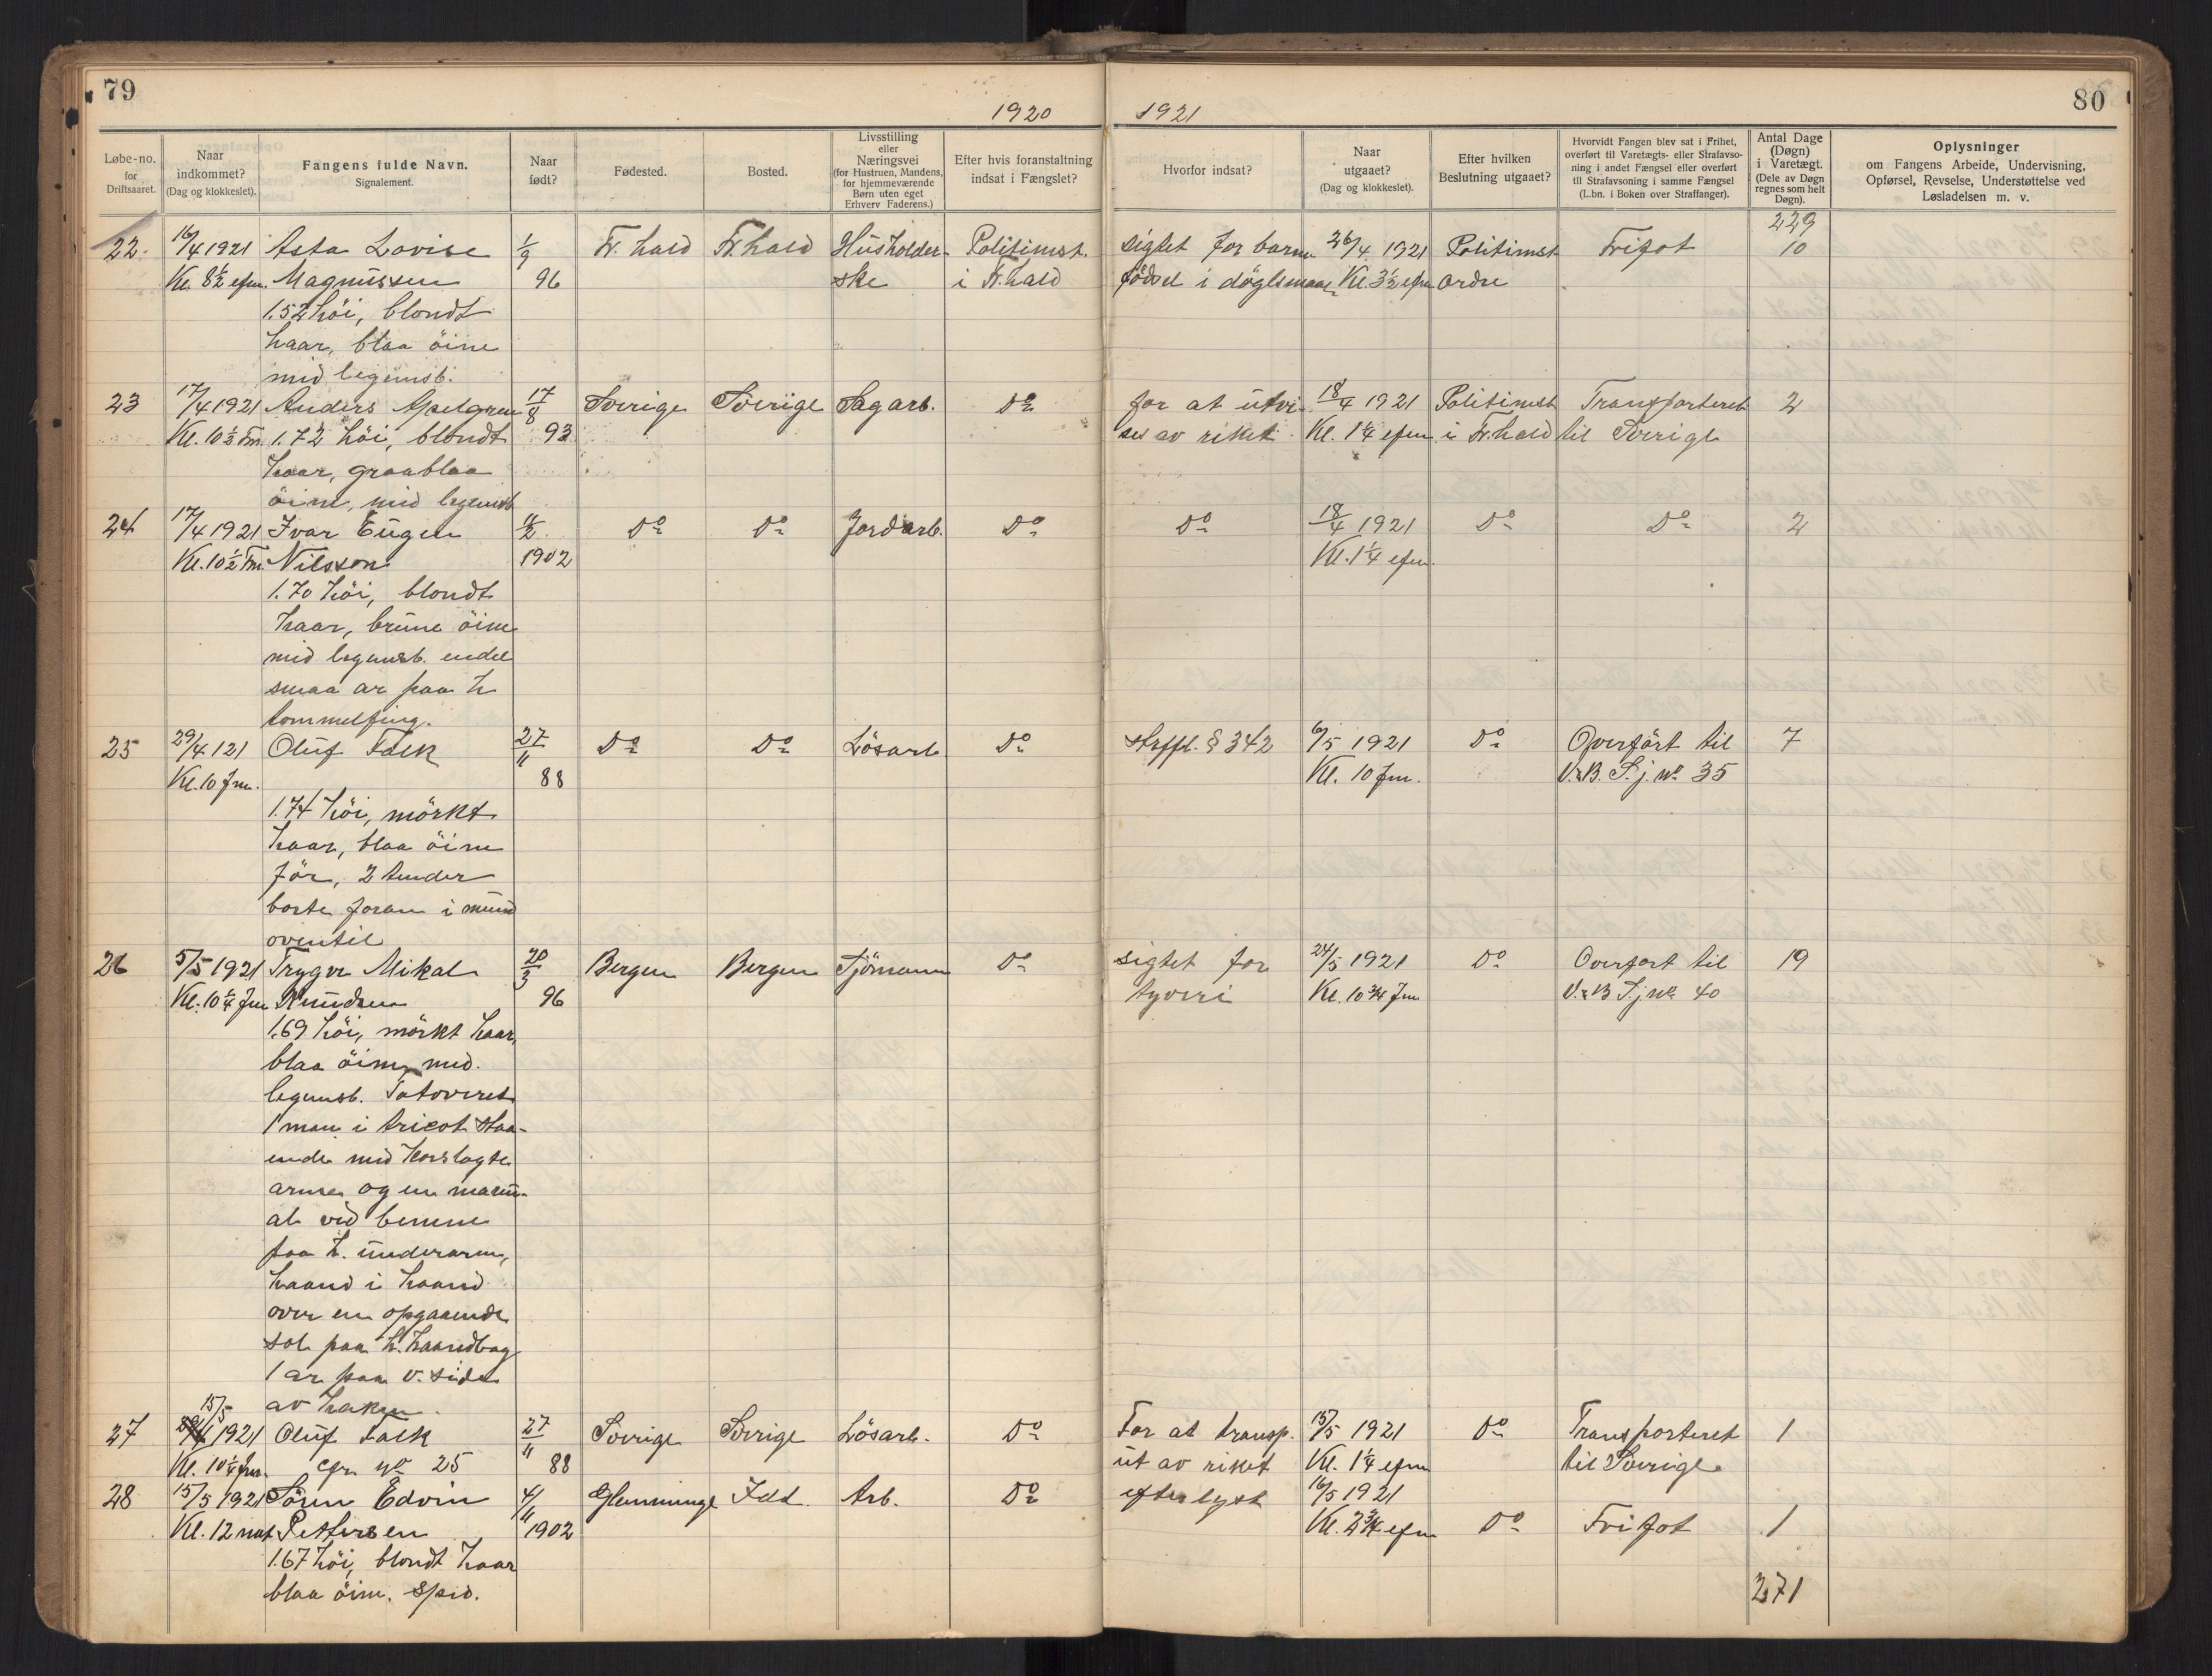 79
80
1920
1921
Løbe-no. for Driftsaaret.
Naar indkommet? (Dag og klokkeslet).
Fangens fulde Navn. Signalement.
Naar født?
Fødested.
Bosted.
Livsstilling eller Næringsvei (for Hustruen, Mandens, for hjemmeværende Børn uten eget Erhverv Faderens.)
Efter hvis foranstaltning indsat i Fængslet?
Hvorfor indsat?
Naar utgaaet? (Dag og klokkeslet).
Efter hvilken Beslutning utgaaet?
Hvorvidt Fangen blev sat i Frihet, overført til Varetægts- eller Strafavsoning i andet Fængsel eller overført til Strafavsoning i samme Fængsel (L.bn. i Boken over Straffanger).
Antal Dage (Døgn) i Varetægt. (Dele av Døgn regnes som helt Døgn).
Oplysninger om Fangens Arbeide, Undervisning, Opførsel, Revselse, Understøttelse ved Løsladelsen m. v.
229
22. 16/4 1921 Asta Lovise 1/9 Fr. hald Fr. hald Husholder- Politimst. sigtet for barne 26/4 1921 Politimst Frifot 10
Kl. 8½ efm. Magnussen 96 ske i Fr. hald fødsel i døglsmaal Kl 3½ efm ordre
1.52 höi, blondt
haar, blaa öine
mid legemsb.
23 17/4 1921 Anders Apelgren 17/8 Sverige Sverige Sagarb. Do for at utvi- 18/4 1921 Politimst Transporteret 2
Kl. 10½ Fm. 1.72 höi, blondt 93 ses av riket. Kl. 1¼ efm i Fr. hald til Sverige
haar, graablaa
öine, mid legemsb
24 17/4 1921 Ivar Eugen 11/2 Do Do Jordarb. Do Do 18/4 1921 Do Do 2
Kl. 10½ Fm. Nilsson 1902 Kl. 1¼ efm.
1.70 höi, blondt
haar, brune öine
mid legemsb. endel
smaa ar paa h
tommelfing.
25 29/4 121 Oluf Falk 27/11 Do Do Lösarb Do strffl. § 342 6/5 1921 Do Overfört til 7
Kl. 10 fm. 88 Kl. 10 fm. V.&B. S.j. No 35
1.74 höi, mörkt
haar, blaa öine
för, 2 tender
borte foran i mund
oventil
26 5/5 1921 Trygve Mikal 20/3 Bergen Bergen Sjömann Do sigtet for 24/5 1921 Do Overfort til 19
Kl. 10¼ fm Knudsen 96 tyveri Kl. 10¾ fm V.&B S.j No 40
1.69 höi, mörkt haar,
blaa öine, mid.
legemsb. Tatoveret
1 man i tricot staa-
ende med korslagte
arme og en
at ved benene
paa h. underarm,
haand i haand
over en opgaaende
sol paa h. haandbag
1 ar paa v. side
av haken.
27 15/5 1921 Oluf Falk 27/11 Sverige Sverige Lösarb. Do For at transp. 15/5 1921 Do Transporteret 1
Kl. 10¼ fm. cfr. No 25 88 ut av riket Kl. 1¼ efm til Sverige
28 15/5 1921 Sören Edvin 4/11 Glemminge Idd. Arb. Do efterlyst 16/5 1921
Kl. 12 nat Pettersen 1902 Kl. 2¾ efm Do Frifot 1
1.67 höi, blondt haar
blaa öine. sped.
271